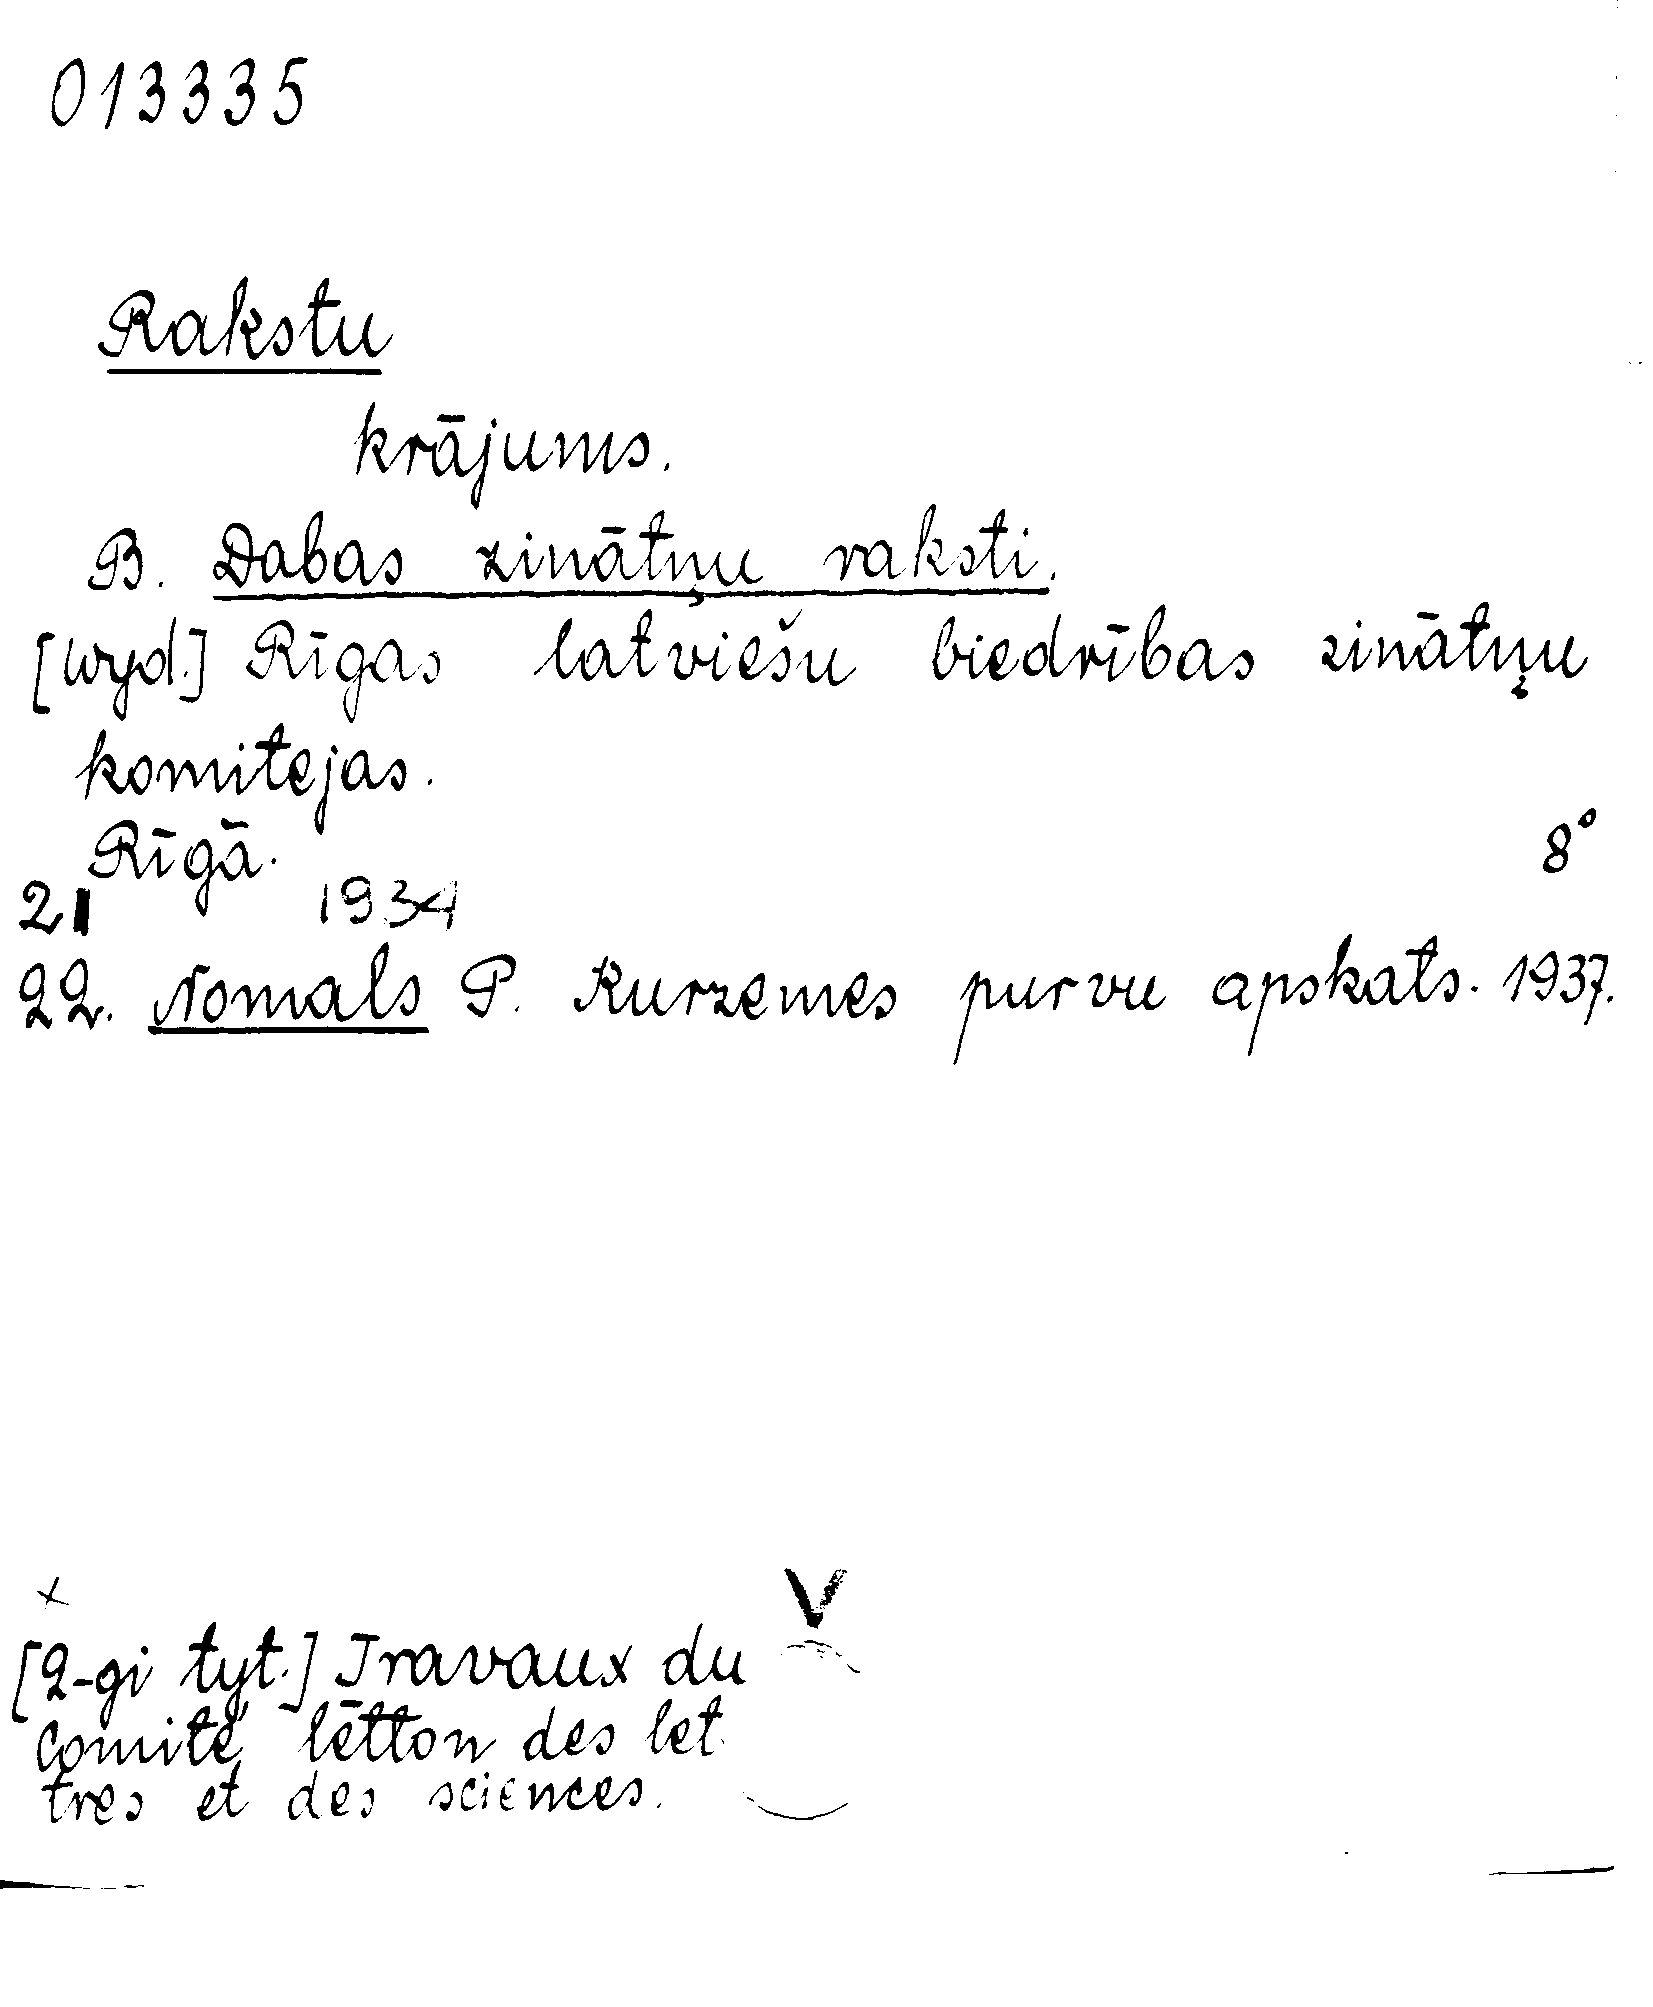 013335
Rakstu
krājums.
B. Dabas zinātņu raksti.
[wyd.] Rīgas latviešu biedrības zinātņu
komitejas.
Rīgā. 8°
21 1934
22. Nomals P. Kurzemes purvu apskats. 1937.
x V
[2-gi tyt.] Travaux du
Comité lētton des let
tres et des sciences.